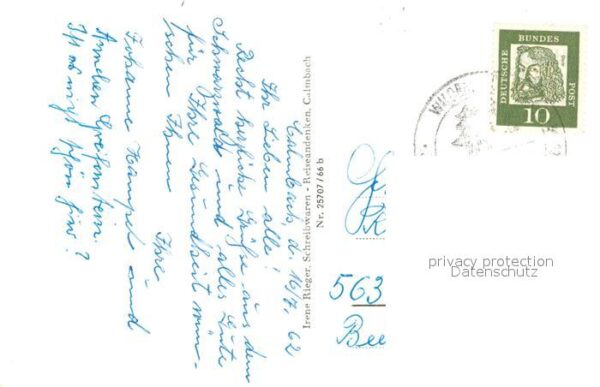 Calmbach, d. 16/7. 62
Ihr Lieben alle!
Recht herzliche Grüße aus dem
Schwarzwald und alles Gute
für Ihre Gesundheit wün-
schen Ihnen
Ihre
Johanne Hampel und
Ännchen Greifenstein.
Ist es nicht schön hier?
Irene Rieger, Schreibwaren - Reiseandenken, Calmbach
Nr. 25707/66 b
DEUTSCHE BUNDES POST
10
563
privacy protection
Datenschutz